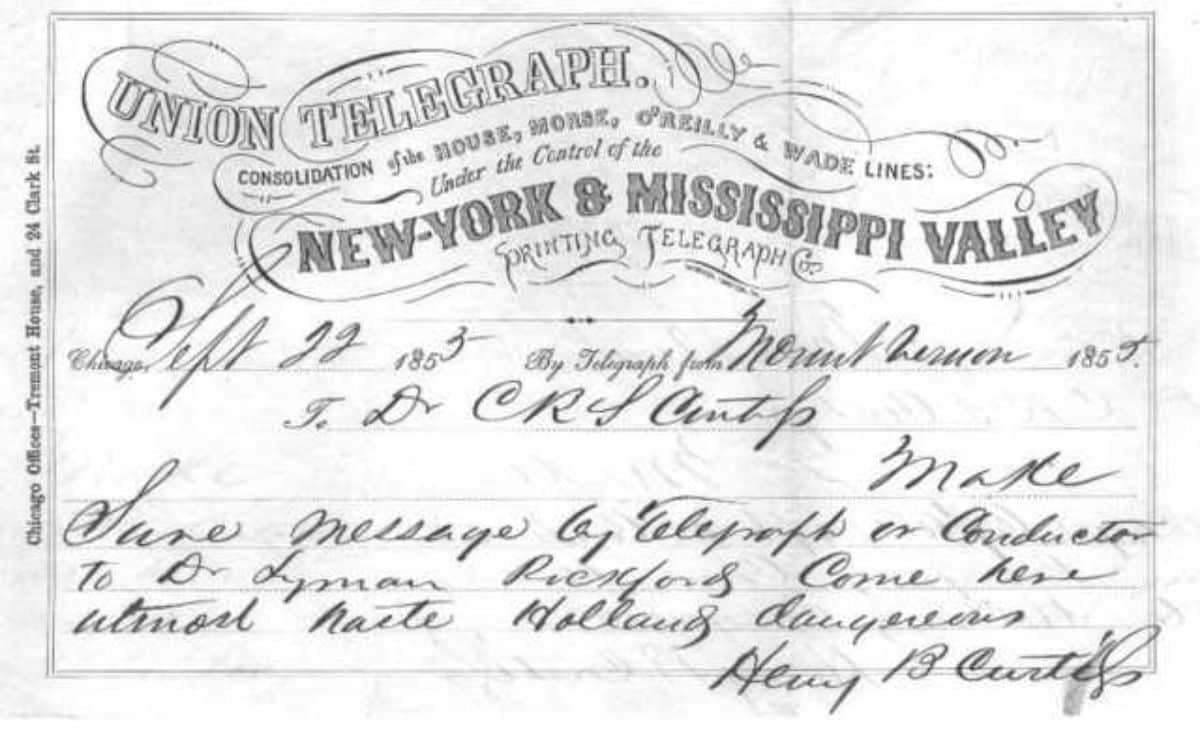 UNION TELEGRAPH.
CONSOLIDATION of the HOUSE, MORSE, O'REILLY & WADE LINES:
Under the Control of the
NEW-YORK & MISSISSIPPI VALLEY
PRINTING TELEGRAPH Co.
Chicago, Sept 22 1855 By Telegraph from Mount Vernon 1855.
To Dr C R S Curtiss
Make
Sure message by Telegraph or Conductor
to Dr Lyman Rockford Come here
utmost haste Holland dangerous
Henry B Curtiss
Chicago Offices—Tremont House, and 24 Clark St.